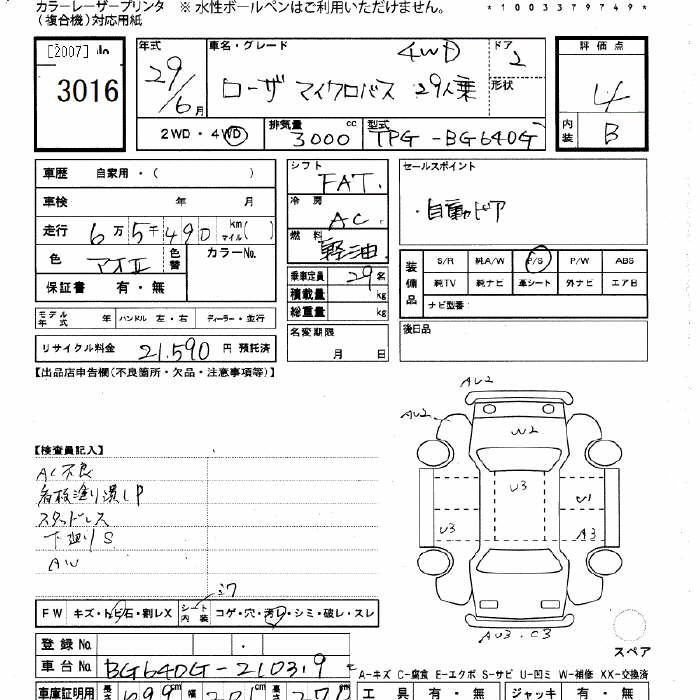 カラーレーザープリンタ ※ 水性ボールペンはご利用いただけません。 *1003379749*
(複合機)対応用紙
[2007]
3016
年式 車名・グレード 4WD ドア 2
29/6月 ローザ マイクロバス 29人乗 形状
2WD・4WD 排気量 3000 cc 型式 TPG-BG640G
評価点
4
内装 B
車歴 自家用・( )
車検 年 月
走行 6万5千490 km マイル( )
色 アオⅡ 色替 カラーNo.
保証書 有・無
シフト FAT.
冷房 AC.
燃料 軽油
乗車定員 29名
積載量 kg
総重量 kg
セールスポイント
・自動ドア
装備品 S/R 純A/W P/S P/W ABS
純TV 純ナビ 革シート 外ナビ エアB
ナビ型番:
モデル年式 年 ハンドル 左・右 ディーラー・並行
名変期限 月 日
後日品
リサイクル料金 21,590 円 預託済
【出品店申告欄(不良箇所・欠品・注意事項等)】
【検査員記入】
AC不良
看板塗り潰しP
スタッドレス
下廻りS
AW
AU2
AU2
W2
U3
U1
U3
A3
AU3.C3
スペア
FW キズ・トビ石・割レX シート内装 コゲ・穴・汚レ・シミ・破レ・スレ
登録No.
車台No. BG640G-210319
A-キズ C-腐食 E-エクボ S-サビ U-凹ミ W-補修 XX-交換済
車庫証明用 長さ 699 cm 幅 201 cm 高さ 27
工具 有・無 ジャッキ 有・無